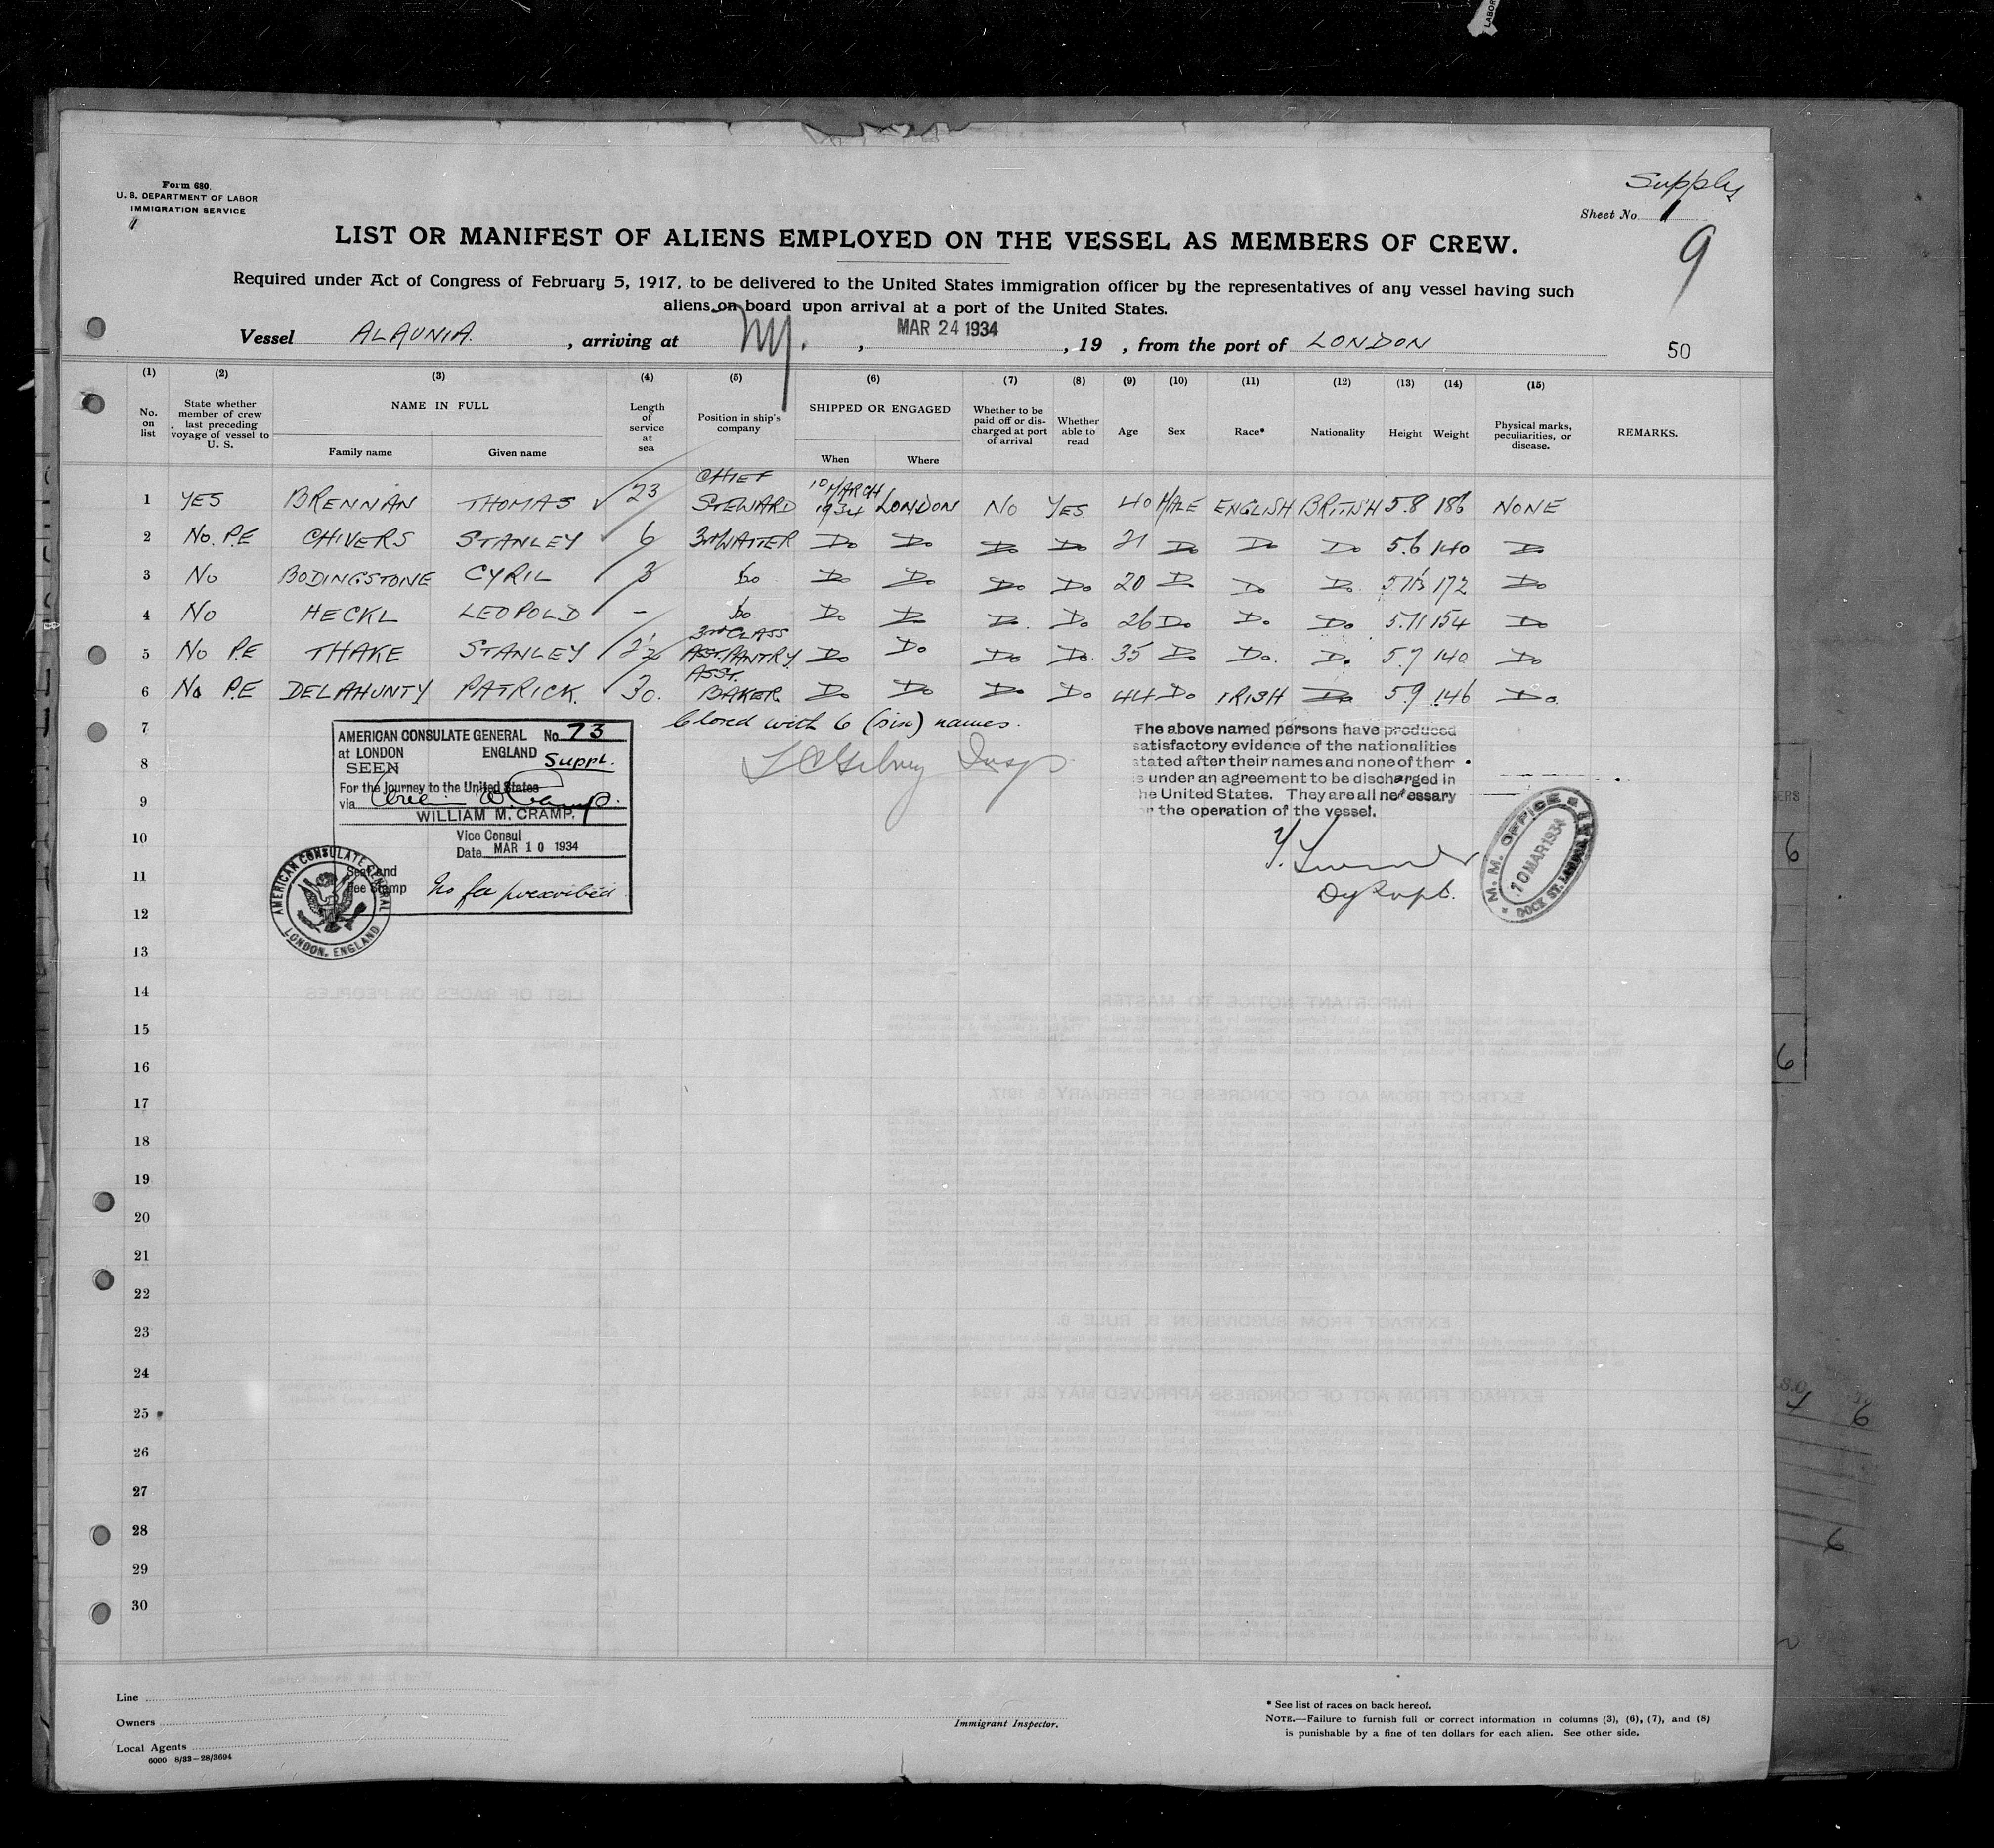 Form 680.
U. S. DEPARTMENT OF LABOR
IMMIGRATION SERVICE
Supply
Sheet No. 1
9
LIST OR MANIFEST OF ALIENS EMPLOYED ON THE VESSEL AS MEMBERS OF CREW.
Required under Act of Congress of February 5, 1917, to be delivered to the United States immigration officer by the representatives of any vessel having such
aliens on board upon arrival at a port of the United States.
Vessel ALAUNIA. , arriving at NY. , MAR 24 1934 , 19 , from the port of LONDON
50
(1) (2) (3) (4) (5) (6) (7) (8) (9) (10) (11) (12) (13) (14) (15)
No. on list
State whether member of crew last preceding voyage of vessel to U. S.
NAME IN FULL
Family name Given name
Length of service at sea
Position in ship's company
SHIPPED OR ENGAGED
When Where
Whether to be paid off or discharged at port of arrival
Whether able to read
Age Sex Race* Nationality Height Weight
Physical marks, peculiarities, or disease.
REMARKS.
1 YES BRENNAN THOMAS 23 CHIEF STEWARD 10 MARCH 1934 LONDON NO YES 40 MALE ENGLISH BRITISH 5.8 186 NONE
2 No. P.E CHIVERS STANLEY 6 3rd WAITER Do Do Do Do 21 Do Do Do 5.6 140 Do
3 No BODINGSTONE CYRIL 3 Do Do Do Do Do 20 Do Do Do 172 Do
4 No HECKL LEOPOLD - Do Do Do Do Do 26 Do Do Do 5.11 154 Do
5 No P.E THAKE STANLEY 3rd CLASS ASST. PANTRY Do Do Do Do 35 Do Do. Do 5.7 140 Do
6 No P.E DELAHUNTY PATRICK. 30. ASST. BAKER Do Do Do Do 44 Do IRISH Do 5.9 146 Do.
7 Closed with 6 (six) names.
8
9
10
11
12
13
14
15
16
17
18
19
20
21
22
23
24
25
26
27
28
29
30
AMERICAN CONSULATE GENERAL No. 73
at LONDON ENGLAND Suppl.
SEEN
For the Journey to the United States
via
WILLIAM M. CRAMP.
Vice Consul
Date MAR 10 1934
Seal and
Fee Stamp No fee prescribed
AMERICAN CONSULATE GENERAL
LONDON, ENGLAND
The above named persons have produced
satisfactory evidence of the nationalities
stated after their names and none of them
is under an agreement to be discharged in
the United States. They are all necessary
for the operation of the vessel.
Dy Supt.
M. M. OFFICE
10 MAR 1934
DOCK ST.
Line
Owners
Local Agents
6000 8/33—28/3694
Immigrant Inspector.
* See list of races on back hereof.
NOTE.—Failure to furnish full or correct information in columns (3), (6), (7), and (8)
is punishable by a fine of ten dollars for each alien. See other side.